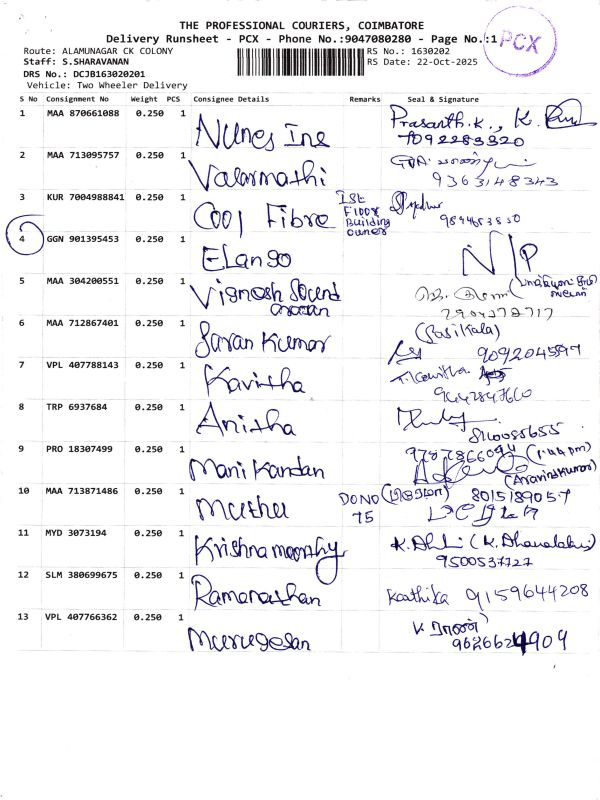 THE PROFESSIONAL COURIERS, COIMBATORE
Delivery Runsheet - PCX - Phone No.:9047080280 - Page No.:1
PCX
Route: ALAMUNAGAR CK COLONY
RS No.: 1630202
Staff: S.SHARAVANAN
RS Date: 22-Oct-2025
DRS No.: DCJB163020201
Vehicle: Two Wheeler Delivery
S No Consignment No Weight PCS Consignee Details Remarks Seal & Signature
1 MAA 870661088 0.250 1 Nunes Ine Prasanth.K., K.
7092283320
2 MAA 713095757 0.250 1 Valarmathi
9363148343
3 KUR 7004988841 0.250 1 Cool Fibre Ist Floor Building owner
9894653850
4 GGN 901395453 0.250 1 ELango N/P
5 MAA 304200551 0.250 1 Vignesh Sound
6 MAA 712867401 0.250 1 Saran Kumar (Sasikala)
7 VPL 407788143 0.250 1 Kavitha T. Kavitha
8 TRP 6937684 0.250 1 Anitha
9 PRO 18307499 0.250 1 Manikandan 9787866044 (1:44 pm)
(Aravindkumar)
10 MAA 713871486 0.250 1 Muthu DONO 75 8015189057
11 MYD 3073194 0.250 1 Krishnamoorthy (K. Dhanalakshmi)
9500537727
12 SLM 380699675 0.250 1 Ramanathan Karthika 9159644208
13 VPL 407766362 0.250 1 Murugesan
9626624909